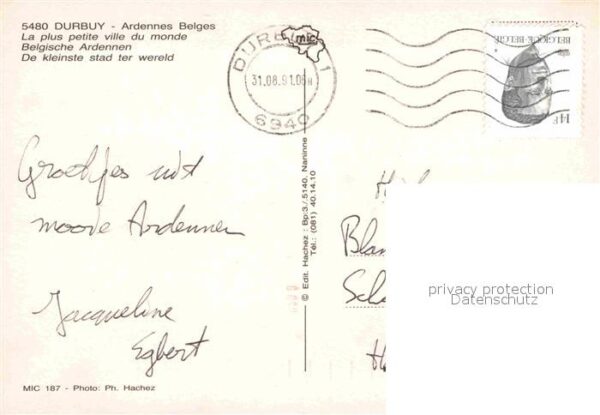 5480 DURBUY - Ardennes Belges
La plus petite ville du monde
Belgische Ardennen
De kleinste stad ter wereld
DURBUY 1
mic
31.08.91.06H
6940
BELGIQUE-BELGIË
14F
Groetjes uit
mooie Ardennen
Jacqueline
Egbert
© Edit. Hachez : Bp:3./5140. Naninne
Tél.: (081) 40.14.10
Blan
Sch
privacy protection
Datenschutz
MIC 187 - Photo: Ph. Hachez